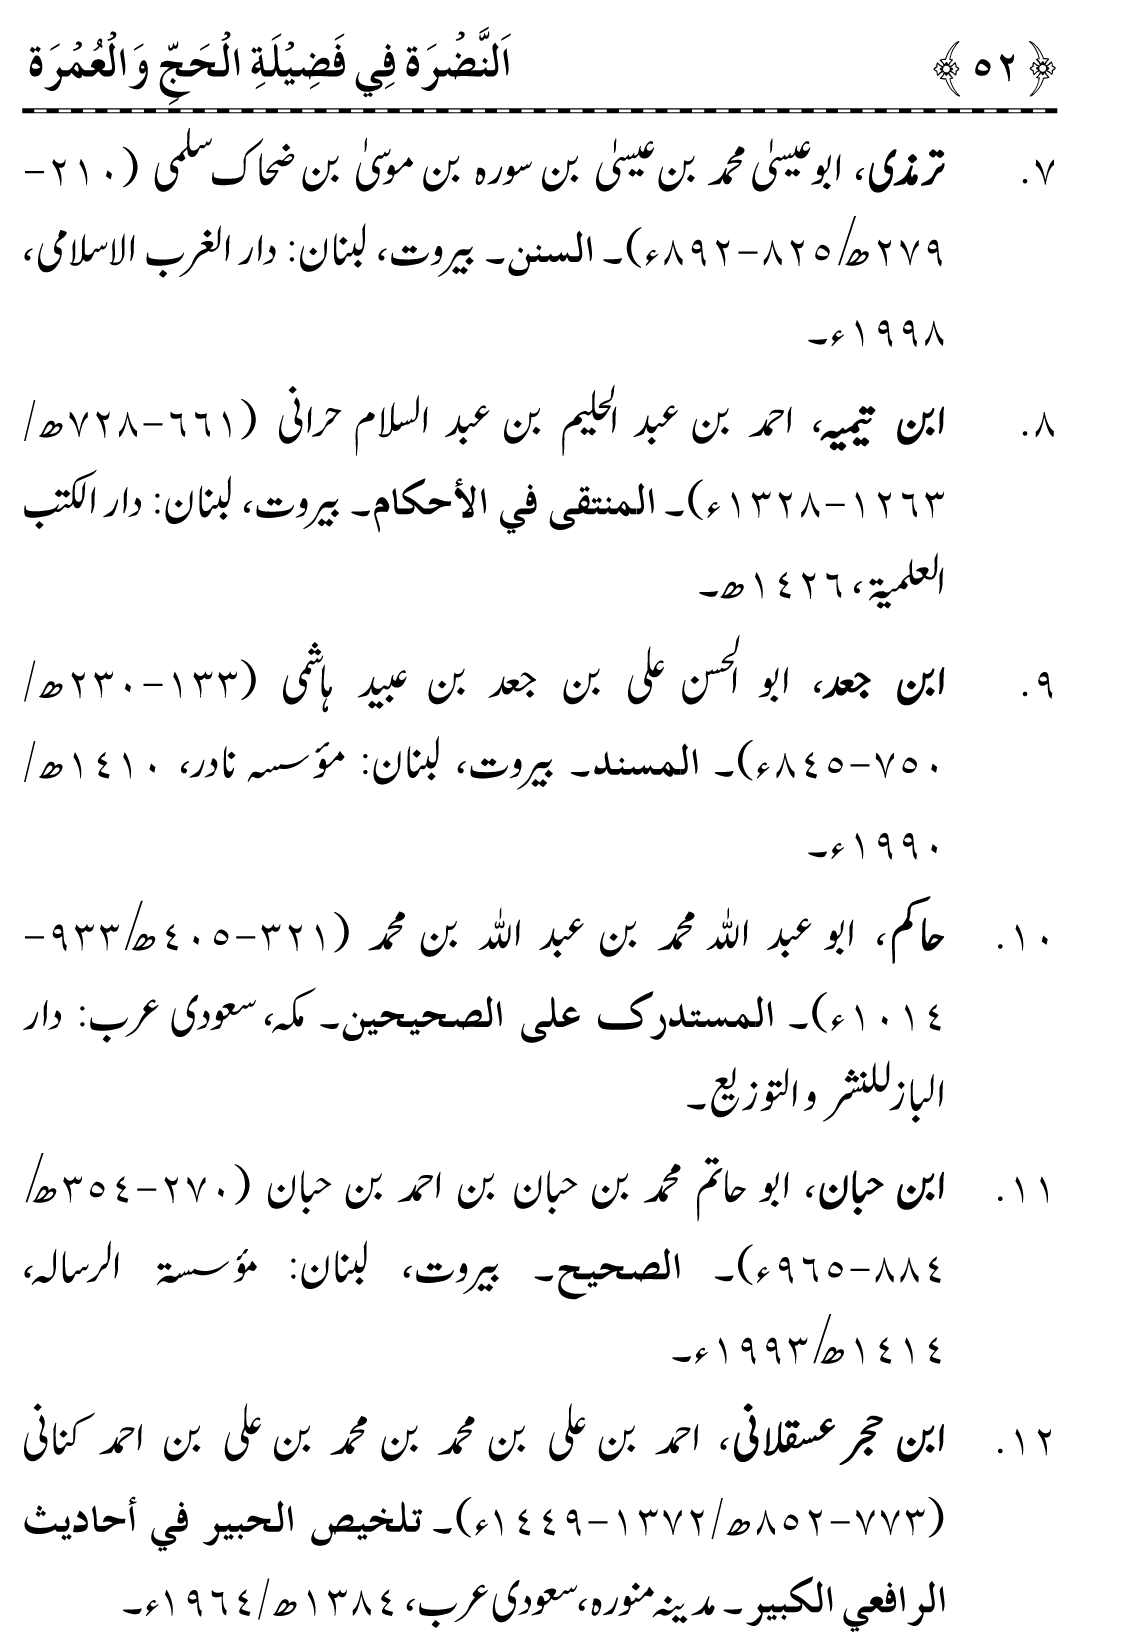 ﴿٥٢﴾ اَلنَّضْرَة فِي فَضِيْلَةِ الْحَجِّ وَالْعُمْرَة
٧. ترمذی، ابو عیسیٰ محمد بن عیسیٰ بن سورہ بن موسیٰ بن ضحاک سلمی (٢١٠-
٢٧٩ھ/٨٢٥-٨٩٢ء)۔ السنن۔ بیروت، لبنان: دار الغرب الاسلامی،
١٩٩٨ء۔
٨. ابن تیمیہ، احمد بن عبد الحلیم بن عبد السلام حرانی (٦٦١-٧٢٨ھ/
١٢٦٣-١٣٢٨ء)۔ المنتقى في الأحكام۔ بیروت، لبنان: دار الکتب
العلمیۃ، ١٤٢٦ھ۔
٩. ابن جعد، ابو الحسن علی بن جعد بن عبید ہاشمی (١٣٣-٢٣٠ھ/
٧٥٠-٨٤٥ء)۔ المسند۔ بیروت، لبنان: مؤسسہ نادر، ١٤١٠ھ/
١٩٩٠ء۔
١٠. حاکم، ابو عبد اللہ محمد بن عبد اللہ بن محمد (٣٢١-٤٠٥ھ/٩٣٣-
١٠١٤ء)۔ المستدرک علی الصحیحین۔ مکہ، سعودی عرب: دار
الباز للنشر والتوزیع۔
١١. ابن حبان، ابو حاتم محمد بن حبان بن احمد بن حبان (٢٧٠-٣٥٤ھ/
٨٨٤-٩٦٥ء)۔ الصحیح۔ بیروت، لبنان: مؤسسۃ الرسالہ،
١٤١٤ھ/١٩٩٣ء۔
١٢. ابن حجر عسقلانی، احمد بن علی بن محمد بن محمد بن علی بن احمد کنانی
(٧٧٣-٨٥٢ھ/١٣٧٢-١٤٤٩ء)۔ تلخيص الحبير في أحاديث
الرافعي الكبير۔ مدینہ منورہ، سعودی عرب، ١٣٨٤ھ/١٩٦٤ء۔